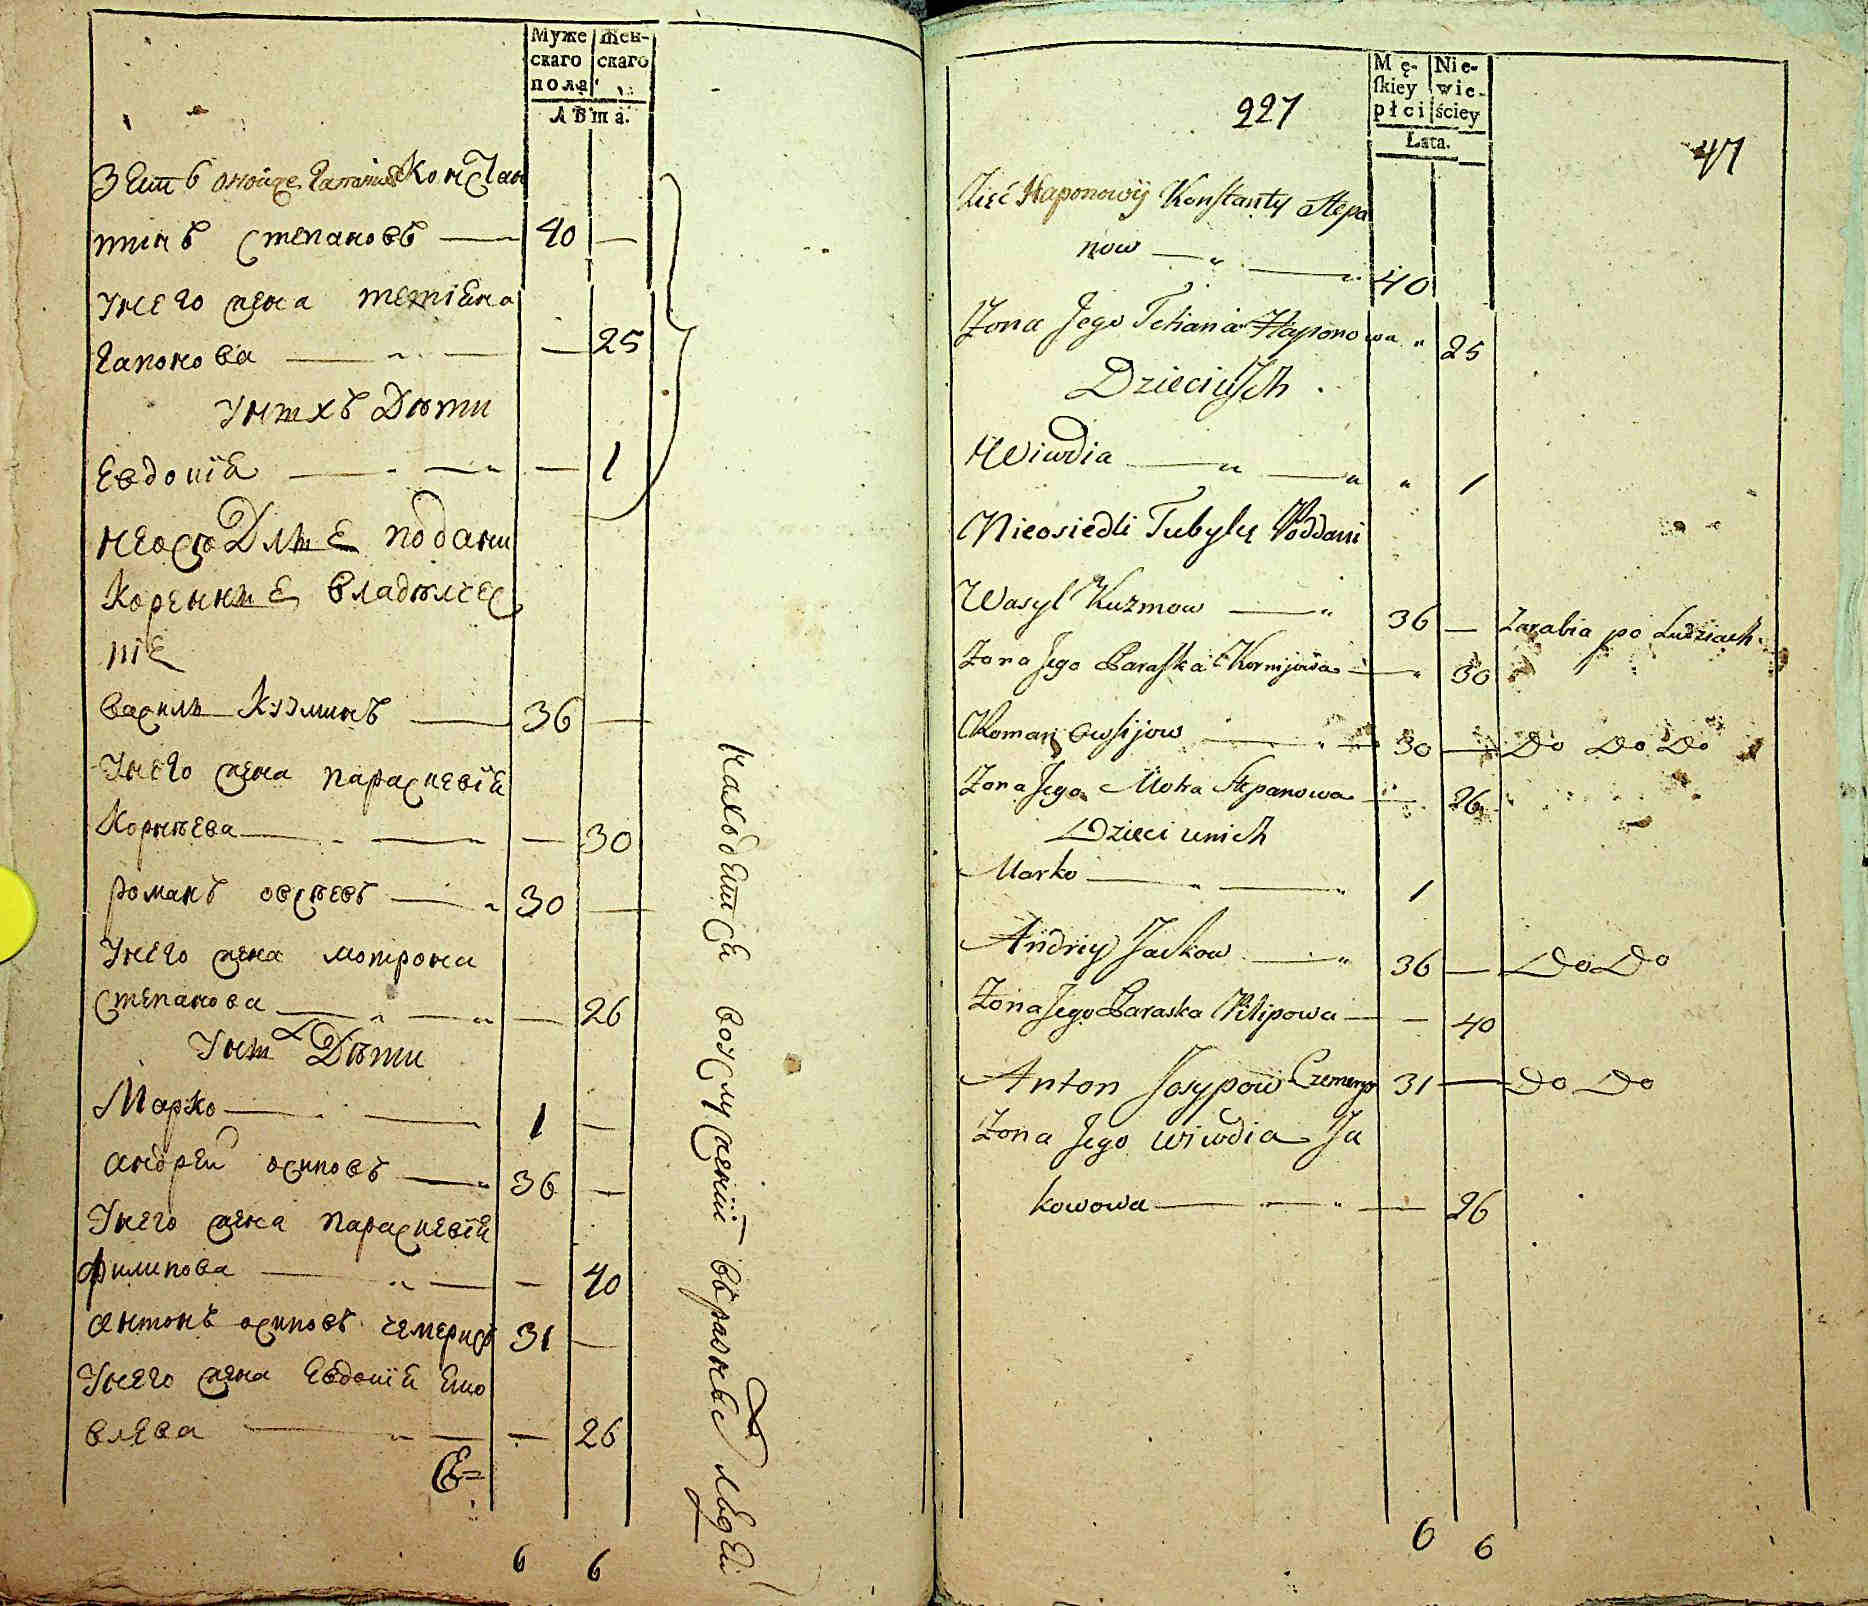 Муже
скаго
пола
Жен-
скаго
Лѣта.
Зеть Констан
тинъ Степановъ — 40 —
У него жена Тетіяна
Гапонова — „ — — 25
У нихъ Дѣти
Евдокія — „ — „ — 1
Неоседлые подани
Коренные владѣлчес
кіе
Василь Кузминъ — 36 —
У него жена Параскевія
Корнѣева — „ — „ — 30
Романъ Овсѣевъ — „ 30 —
У него жена Мотрона
Степанова — „ — „ — 26
У них Дѣти
Марко — — 1 —
Андрей Осиповъ — „ 36 —
У него жена Параскевія
Филипова — „ — — 40
Антонъ Осиповъ Чемерисъ 31 —
У него жена Евдокія Яко
влева — „ — — 26
6 6
находятся во услуженіи в разных людей
227
47
Mę-
skiey
płci
Nie-
wie-
ściey
Łata.
Zięć Haponowy Konstanty Stepa
now — „ — „ 40
Żona Jego Tetiana Haponowa „ 25
Dzieci u Jch
Wiwdia — „ — „ „ 1
Nieosiedli Tubylcy Poddani
Wasyl Kuzmow — „ 36 — Zarabia po Ludziach
Żona Jego Paraska Kornijowa — „ 30
Roman Owsijow — „ — 30 — Do Do Do
Żona Jego Motra Stepanowa — 26
Dzieci u nich
Marko — — „ 1
Andriy Jackow — „ 36 — Do Do
Żona Jego Paraska Pilipowa — — 40
Anton Josypow Czemerys 31 — Do Do
Żona Jego Wiwdia Ja
kowowa — — „ — 26
6 6